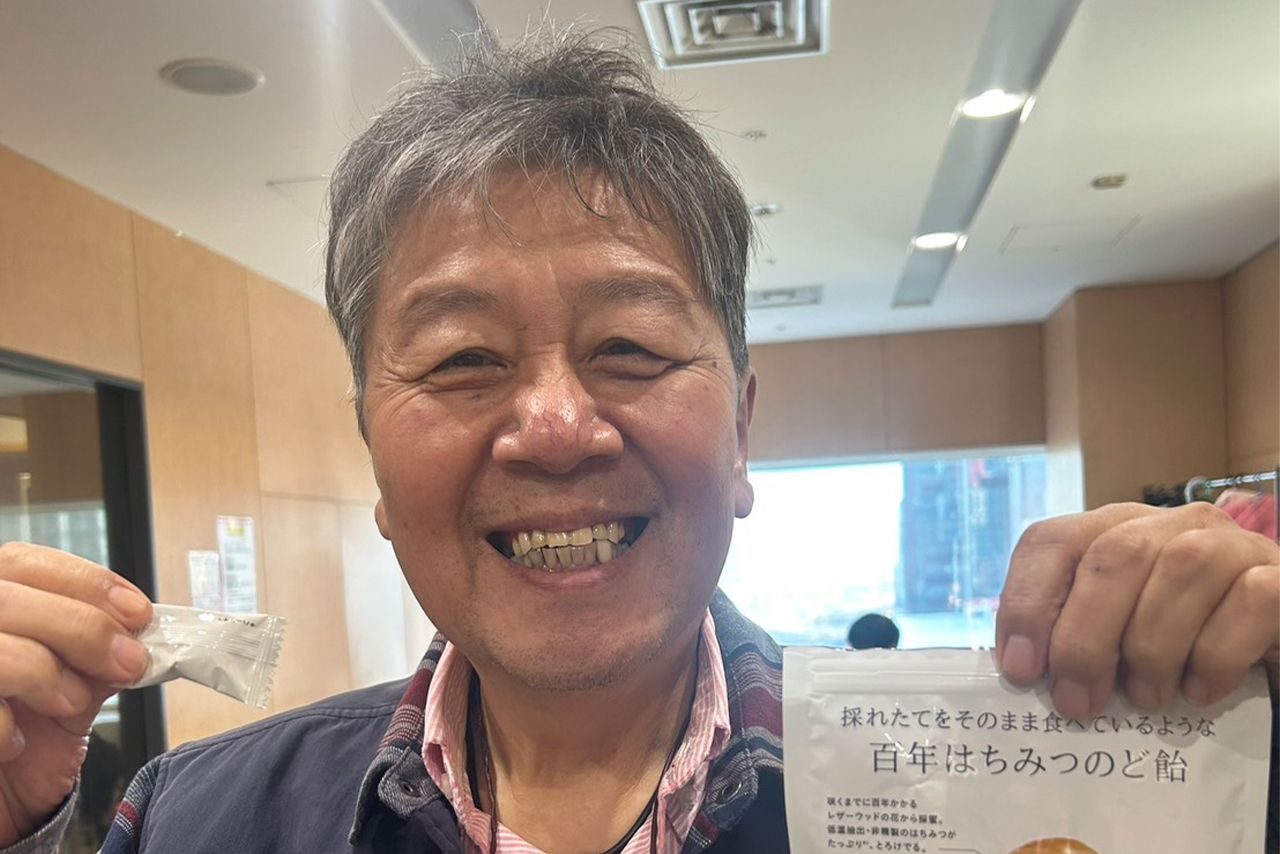 採れたてをそのまま食べているような
百年はちみつのど飴
咲くまでに百年かかる
レザーウッドの花から採蜜。
低温抽出・非精製のはちみつが
たっぷり*¹、とろけでる。